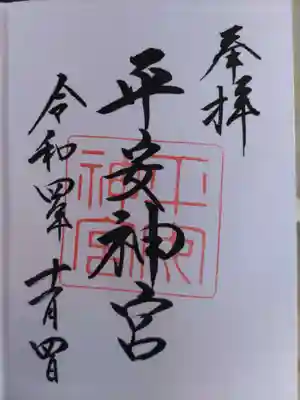 奉拝
平安神宮
平安神宮
令和四年 十一月四日